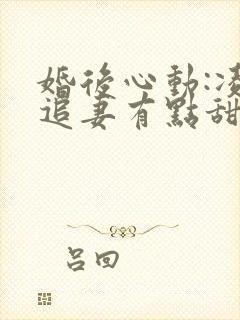 婚後心動:凌
追妻有點甜
呂回